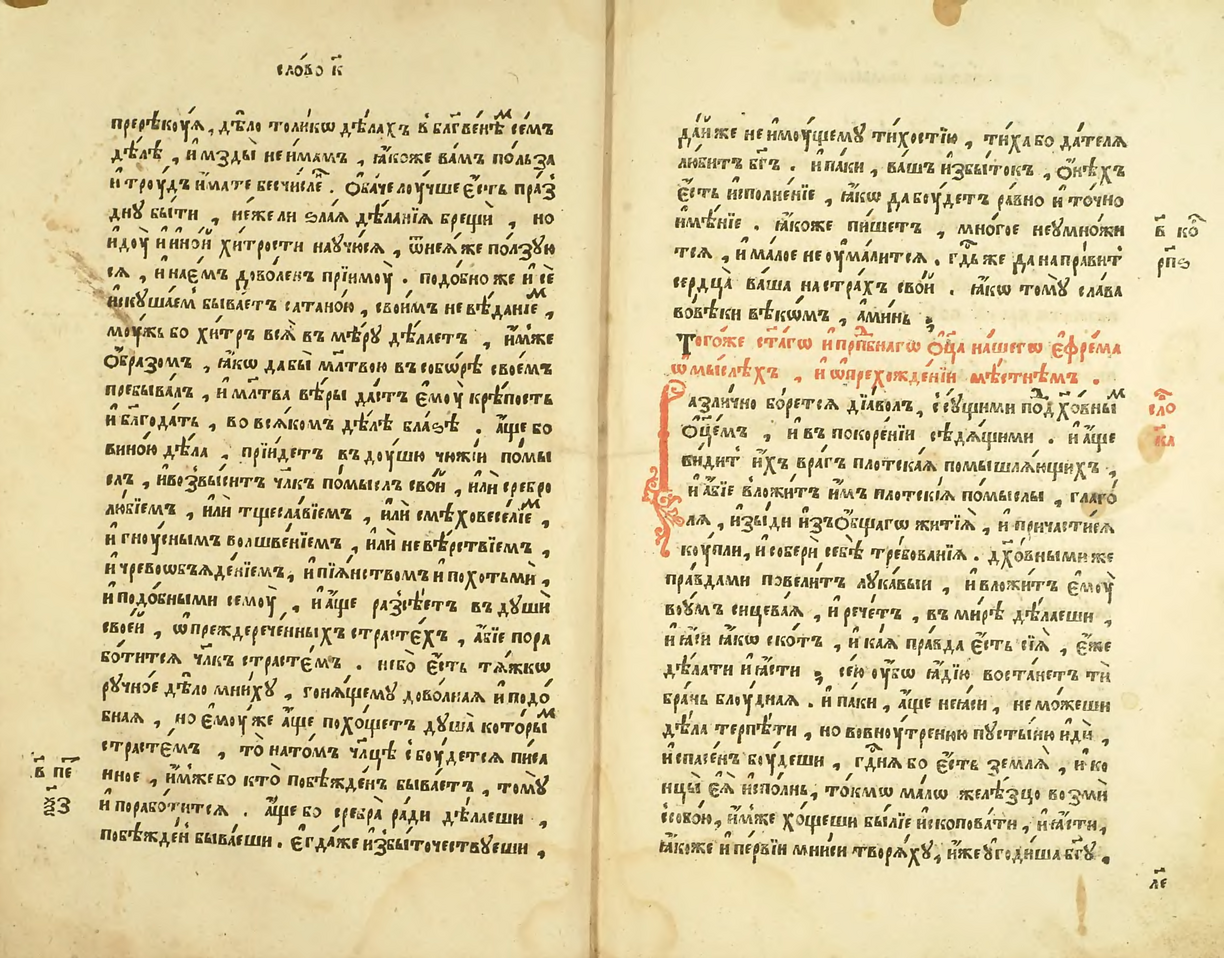 сло́во к҃
прерѣкоуꙗ , дѣ́ло толи́кѡ дѣ́лахъ в҆ бл҃гве́нѣⷨ се́мъ
дѣ́лѣ , и҆ мзды̀ не и҆́мамъ , ꙗ҆́коже ва́мъ по́льза
и҆ троу́дъ и҆́мате бесчи́слеⷩ҇ . Ѻ҆ба́че лоу́чше є҆́сть пра́з
днꙋ бы́ти , не́же ли ѕла́ѧ дѣ́ланїѧ брещѝ , но
и҆доу̀ и҆ и҆но́й хи́трости наꙋчю́сѧ , ѿнеѧ́же по́лзꙋю
сѧ , и҆ нае́мъ дово́ленъ прїимоу̀ . подо́бно же и҆ сѐ
и҆скꙋша́ем быва́етъ сатано́ю , свои́мъ невѣ́данїеⷨ ,
моу́жь бо хи́тръ всѧ̀ въ мѣ́рꙋ дѣ́лаетъ , и҆́мже
Ѻ҆́бразомъ , ꙗ҆́кѡ да бы̀ мл҃твою въ собо́рѣ свое́мъ
пребыва́лъ , и҆ мл҃тва вѣ́ры да́стъ є҆моу̀ крѣ́пость
и҆ бл҃года́ть , во всѧ́комъ дѣ́лѣ бла́ѕѣ . а҆́ще бо
вино́ю дѣ́ла , прїи́детъ въ доу́шю чюжі́и помы́
слъ , и҆ возвы́ситъ чл҃къ по́мыслъ сво́й , и҆лѝ сребро
лю́бїемъ , и҆лѝ тщесла́вїемъ , и҆лѝ смѣ́ховесе́лїеⷨ ,
и҆ гноу́снымъ волшве́нїемъ , и҆лѝ невѣ́рствїемъ ,
и҆ чревоѡбъѧде́нїемъ , и҆ пїѧ́нствомъ и҆ похотьмѝ ,
и҆ подо́бными семоу̀ , и҆ а҆́ще разсѣ́етъ въ дꙋшѝ
свое́й , ѡ҆ преждерече́нныхъ страсте́хъ , а҆́бїе пора
бо́титсѧ чл҃къ страсте́мъ . небо̀ є҆́сть тѧ́жкѡ
рꙋчно́е дѣ́ло мни́хꙋ , гонѧ́щемꙋ дово́лнаѧ и҆ подо́
бнаѧ , но є҆моу́же а҆́ще похо́щетъ дꙋша̀ кото́рыⷨ
страсте́мъ , то̀ на то́мъ чл҃цѣ сбоу́детсѧ писа
нное , и҆́мже бо кто̀ побѣжде́нъ быва́етъ , томꙋ̀
и҆ порабо́титсѧ . а҆́ще бо сребра̀ ра́ди дѣ́лаеши ,
побѣжде́н быва́еши . є҆гда́же и҆збы́точествꙋеши ,
в҃ пеⷮ
з҃
да́й же не и҆моу́щемꙋ ти́хостїю , ти́ха бо да́телѧ
лю́битъ бг҃ъ . и҆ па́ки , ва́шъ и҆збы́токъ , ѻ҆нѣ́хъ
є҆́сть и҆сполне́нїе , ꙗ҆́кѡ да боу́детъ ра́вно и҆ то́чно
и҆мѣ́нїе . ꙗ҆́коже пи́шетъ , мно́гое не ꙋмно́жи
тсѧ , и҆ ма́лое не оу҆ма́литсѧ . гдⷭ҇ь же да напра́вит
сердца̀ ва́ша на стра́хъ сво́й . ꙗ҆́кѡ томꙋ̀ сла́ва
во вѣ́ки вѣкѡ́мъ , а҆ми́нь ;
в҃ коⷬ
рп҃ѕ
Того́же ст҃а́гѡ и҆ прпⷣбнагѡ ѻ҆ц҃а̀ на́шегѡ є҆фре́ма
ѡ҆ мы́слехъ , и҆ ѡ҆ прехожде́нїи мѣ́стнѣмъ .
сло
к҃а
Разли́чно бо́ретсѧ дїа́волъ , с҆ сꙋ́щими под дꙋхо́вныⷨ
ѻ҆ц҃е́мъ , и҆ въ покоре́нїи сѣдѧ́щими . и҆ а҆́ще
ви́дитъ и҆́хъ вра́гъ пло́тскаѧ помышлѧ́ющихъ ,
и҆ а҆́бїе вложи́тъ и҆́мъ пло́тскїѧ по́мыслы , глаго́
лѧ , и҆зы́ди и҆зъ ѻ҆́бщагѡ житїѧ̀ , и҆ причасти́сѧ
коу́пли , и҆ соберѝ себѣ̀ тре́бованїѧ . дх҃о́вными же
пра́вдами повели́тъ лꙋка́выи , и҆ вложи́тъ є҆моу̀
во оу҆́мъ сицева́ѧ , и҆ рече́тъ , въ ми́рѣ дѣ́лаеши ,
и҆ ꙗ҆́си ꙗ҆́кѡ ско́тъ , и҆ ка́ѧ пра́вда є҆́сть сїѧ̀ , є҆́же
дѣ́лати и҆ ꙗ҆́сти ; се́ю оу҆́бѡ ꙗ҆́дїю воста́нетъ тѝ
бра́нь блоу́днаѧ . и҆ па́ки , а҆́ще не ꙗ҆́си , не мо́жеши
дѣ́ла терпѣ́ти , но во вноу́треннюю пꙋсты́ню и҆дѝ ,
и҆ спасе́н боу́деши , гдⷭ҇нѧ бо є҆́сть землѧ̀ , и҆ ко
нцы̀ є҆ѧ̀ и҆спо́лнь , то́кмѡ ма́лѡ желѣ́зцо возмѝ
с҆ собо́ю , и҆́мже хо́щеши бы́лїе и҆скопова́ти , и҆ ꙗ҆́сти ,
ꙗ҆́коже и҆ пе́рвїи мни́си творѧ́хꙋ , и҆́же ꙋгоди́ша бг҃ꙋ .
л҃е